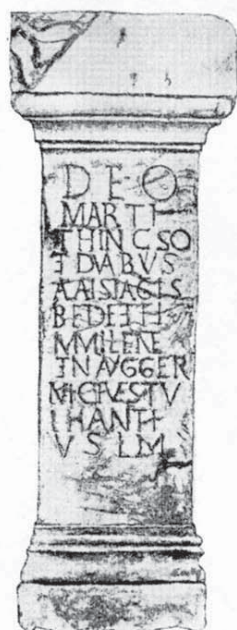 DEO
MARTI
THINCSO
ET DVABVS
ALAISIAGIS
BEDE ET FI
MMILENE
ET N AVG GER
M CIVES TV
IHANTI
V S L M